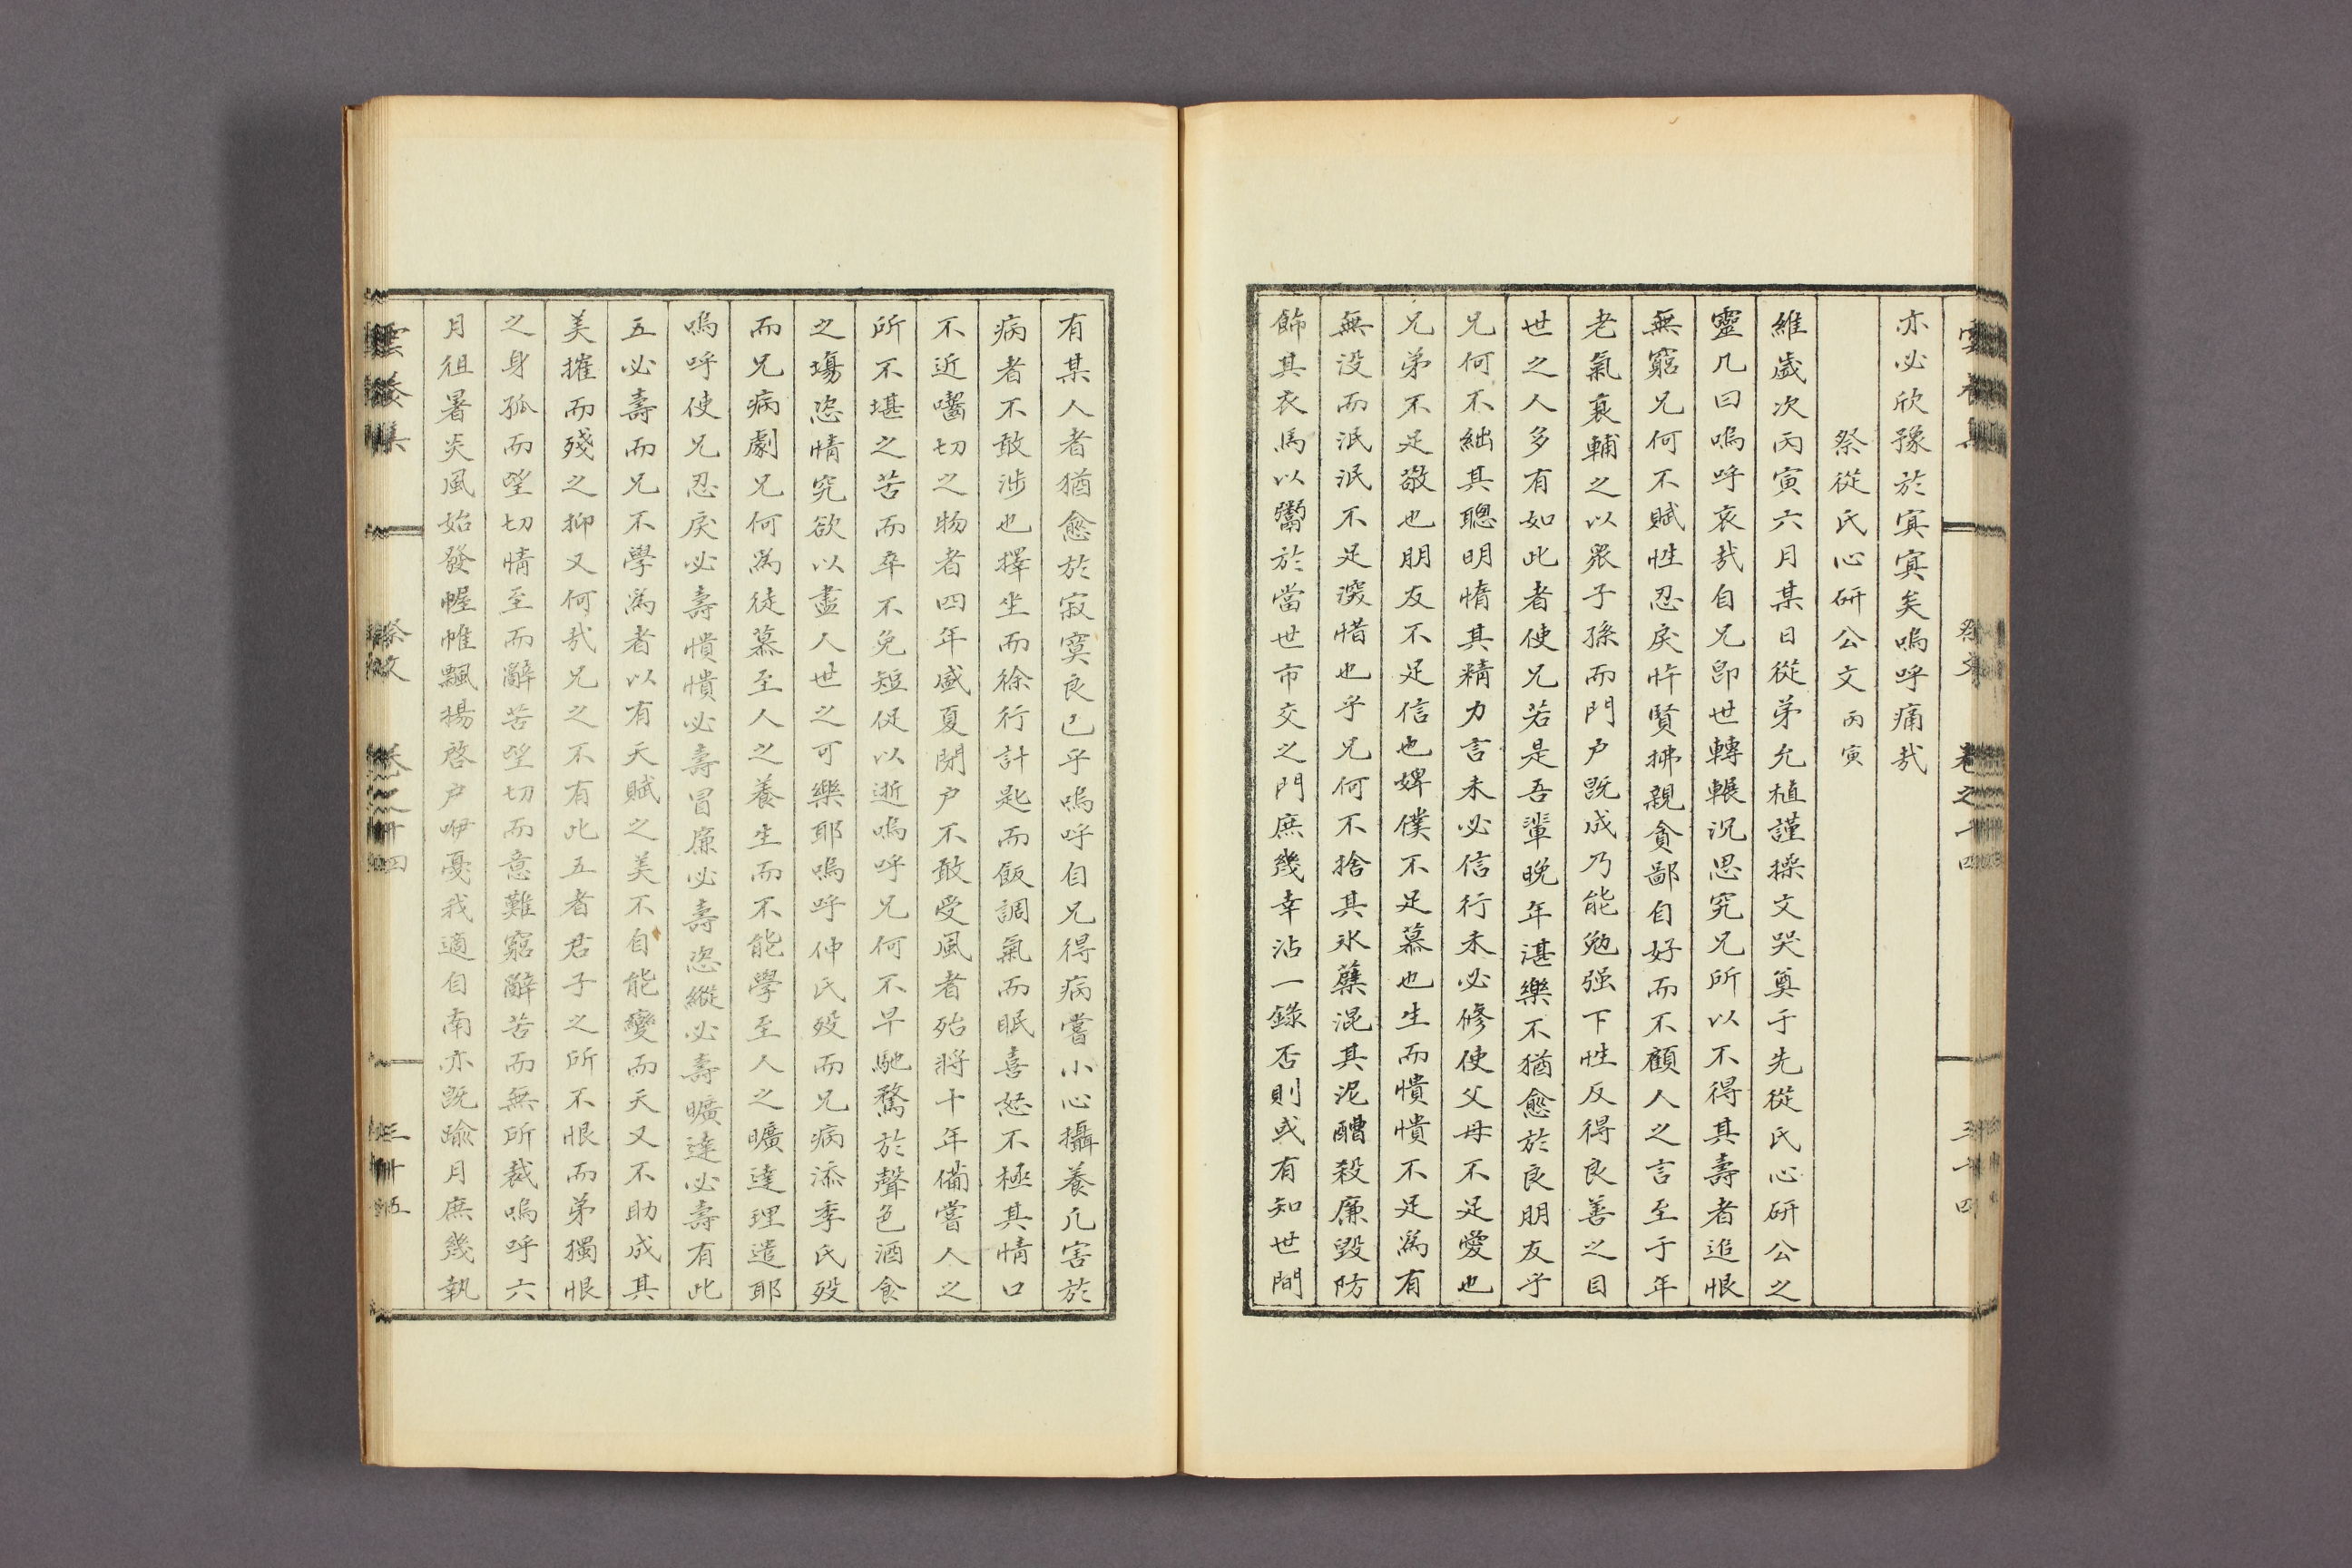 亦必欣豫於冥冥矣嗚呼痛哉
祭從氏心研公文 丙寅
維歲次丙寅六月某日從弟允植謹操文哭奠于先從氏心研公之
靈几曰嗚呼哀哉自兄卽世轉輾沉思究兄所以不得其壽者追恨
無窮兄何不賦性忍戾忤賢拂親貪鄙自好而不顧人之言至于年
老氣衰輔之以衆子孫而門户既成乃能勉强下性反得良善之目
世之人多有如此者使兄若是吾輩晚年湛樂不猶愈於良朋友乎
兄何不絀其聰明惰其精力言未必信行未必修使父母不足愛也
兄弟不足敬也朋友不足信也婢僕不足慕也生而憒憒不足爲有
無没而泯泯不足深惜也乎兄何不捨其氷蘖混其泥醩殺廉毀防
飾其衣馬以鬻於當世市交之門庶幾幸沾一錄否則或有知世間
有某人者猶愈於寂寞良已乎嗚呼自兄得病嘗小心攝養凡害於
病者不敢涉也擇坐而徐行計匙而飯調氣而眠喜怒不極其情口
不近囓切之物者四年盛夏閉户不敢受風者殆將十年備嘗人之
所不堪之苦而卒不免短促以逝嗚呼兄何不早馳騖於聲色酒食
之塲恣情究欲以盡人世之可樂耶嗚呼仲氏歿而兄病添季氏歿
而兄病劇兄何爲徒慕至人之養生而不能學至人之曠達理遣耶
嗚呼使兄忍戾必壽憒憒必壽冒廉必壽恣縱必壽曠達必壽有此
五必壽而兄不學爲者以有天賦之美不自能變而天又不助成其
美摧而殘之抑又何哉兄之不有此五者君子之所不恨而弟獨恨
之身孤而望切情至而辭苦望切而意難窮辭苦而無所裁嗚呼六
月徂暑炎風始發幄帷飄揚啓户咿憂我適自南亦既踰月庶幾執